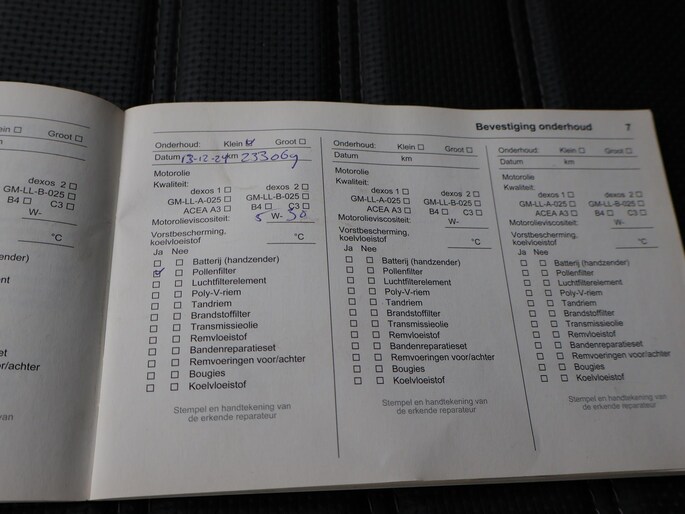 ein ☐ Groot ☐
m
2 ☐
25 ☐
C3 ☐
W-
°C
ender)
ment
e
set
r/achter
van
Bevestiging onderhoud 7
Onderhoud: Klein ☑ Groot ☐
Datum 13-12-24 km 233069
Motorolie
Kwaliteit:
dexos 1 ☐ dexos 2 ☐
GM-LL-A-025 ☐ GM-LL-B-025 ☐
ACEA A3 ☐ B4 ☐ C3 ☐
Motorolieviscositeit: 5 W- 30
Vorstbescherming,
koelvloeistof °C
Ja Nee
☐ ☐ Batterij (handzender)
☑ ☐ Pollenfilter
☐ ☐ Luchtfilterelement
☐ ☐ Poly-V-riem
☐ ☐ Tandriem
☐ ☐ Brandstoffilter
☐ ☐ Transmissieolie
☐ ☐ Remvloeistof
☐ ☐ Bandenreparatieset
☐ ☐ Remvoeringen voor/achter
☐ ☐ Bougies
☐ ☐ Koelvloeistof
Stempel en handtekening van
de erkende reparateur
Onderhoud: Klein ☐ Groot ☐
Datum km
Motorolie
Kwaliteit:
dexos 1 ☐ dexos 2 ☐
GM-LL-A-025 ☐ GM-LL-B-025 ☐
ACEA A3 ☐ B4 ☐ C3 ☐
Motorolieviscositeit: W-
Vorstbescherming,
koelvloeistof °C
Ja Nee
☐ ☐ Batterij (handzender)
☐ ☐ Pollenfilter
☐ ☐ Luchtfilterelement
☐ ☐ Poly-V-riem
☐ ☐ Tandriem
☐ ☐ Brandstoffilter
☐ ☐ Transmissieolie
☐ ☐ Remvloeistof
☐ ☐ Bandenreparatieset
☐ ☐ Remvoeringen voor/achter
☐ ☐ Bougies
☐ ☐ Koelvloeistof
Stempel en handtekening van
de erkende reparateur
Onderhoud: Klein ☐ Groot ☐
Datum km
Motorolie
Kwaliteit:
dexos 1 ☐ dexos 2 ☐
GM-LL-A-025 ☐ GM-LL-B-025 ☐
ACEA A3 ☐ B4 ☐ C3 ☐
Motorolieviscositeit: W-
Vorstbescherming,
koelvloeistof °C
Ja Nee
☐ ☐ Batterij (handzender)
☐ ☐ Pollenfilter
☐ ☐ Luchtfilterelement
☐ ☐ Poly-V-riem
☐ ☐ Tandriem
☐ ☐ Brandstoffilter
☐ ☐ Transmissieolie
☐ ☐ Remvloeistof
☐ ☐ Bandenreparatieset
☐ ☐ Remvoeringen voor/achter
☐ ☐ Bougies
☐ ☐ Koelvloeistof
Stempel en handtekening van
de erkende reparateur